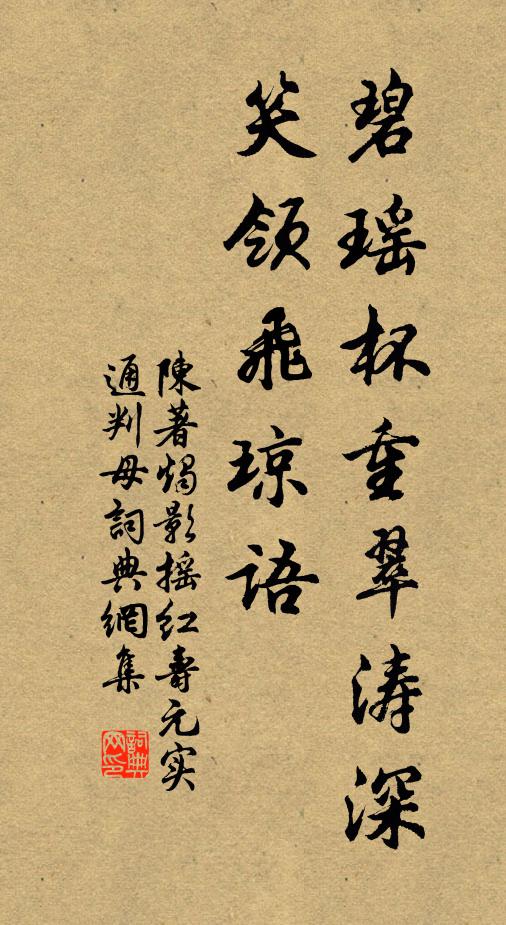 碧瑶杯重翠涛深
笑领飛琼语
陳著燭影摇红壽元实
通判母詞典網集
詞典网印